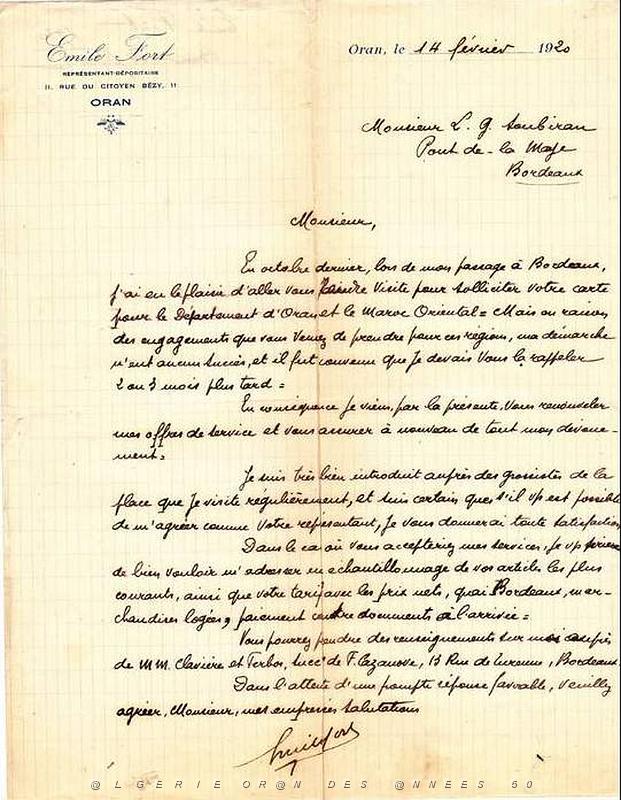 Emile Fort
REPRÉSENTANT-DÉPOSITAIRE
11, RUE DU CITOYEN BÉZY, 11
ORAN
Oran, le 14 février 1920
Monsieur L. G. Soubiran
Pont de-la Maye
Bordeaux
Monsieur,
En octobre dernier, lors de mon passage à Bordeaux,
j'ai eu le plaisir d'aller vous rendre visite pour solliciter votre carte
pour le Département d'Oran et le Maroc Oriental = Mais en raison
des engagements que vous veniez de prendre pour ces régions, ma démarche
n'eut aucun succès, et il fut convenu que je devais vous la rappeler
2 ou 3 mois plus tard =
En conséquence je viens, par la présente, vous renouveler
mes offres de service et vous assurer à nouveau de tout mon dévoue-
ment =
Je suis très bien introduit auprès des grossistes de la
place que je visite regulièrement, et suis certain que s'il vs est possible
de m'agréer comme votre représentant, je vous donnerai toute satisfaction
Dans le cas où vous accepteriez mes services, je vs prierai
de bien vouloir m'adresser un échantillonnage de vos articles les plus
courants, ainsi que votre tarif avec les prix nets, quai Bordeaux, mar-
chandises logées, paiement contre documents à l'arrivée =
Vous pourrez prendre des renseignements sur moi auprès
de MM. Clavière et Terbos, Succrs de F. Cazanove, 13 Rue de Turenne, Bordeaux
Dans l'attente d'une prompte réponse favorable, veuillez
agréer, Monsieur, mes empressées salutations
Emile Fort
@LGERIE OR@N DES @NNEES 50